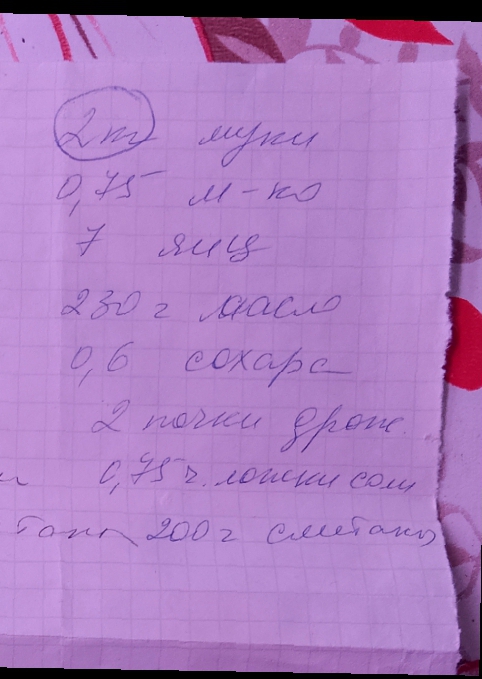 2кг муки
0,75 м-ко
7 яиц
230 г масло
0,6 сохара
2 почки дрож.
0,75 ч. ложки соли
200 г сметаны